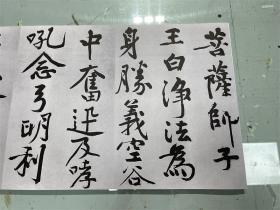 菩薩師子
王白淨法為
身勝義空谷
中奮迅及哮
吼念弓明利